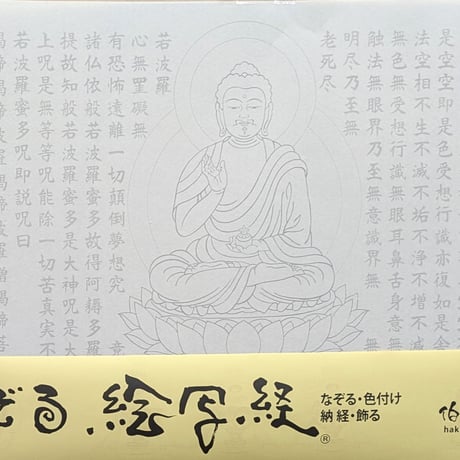 是空空即是色受想行識亦復如是舍
法空相不生不滅不垢不浄不増不
無色無受想行識無眼耳鼻舌身意無
触法無眼界乃至無意識界無
明尽乃至無
老死尽
若波羅
心無罣礙無
有恐怖遠離一切顛倒夢想究竟
諸仏依般若波羅蜜多故得阿耨多羅
提故知般若波羅蜜多是大神呪是
上呪是無等等呪能除一切苦真実不
若波羅蜜多呪即説呪曰
羯諦羯諦波羅羯諦波羅僧羯諦菩
ぞる 絵写経®
なぞる・色付け
納経・飾る
伯
hak